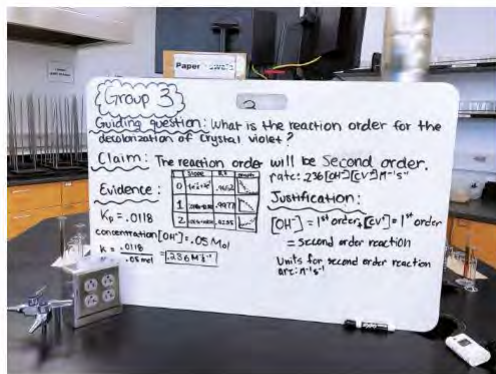 Paper
Group 3
Guiding question: What is the reaction order for the
decolorization of Crystal violet?
Claim: The reaction order will be Second order.
rate: .236[OH⁻][CV⁺]M⁻¹s⁻¹
Evidence:
0
1
2
Kₚ = .0118
concentration [OH⁻] = .05 Mol
K = .0118 / .05 mol = .236 M⁻¹s⁻¹
Justification:
[OH⁻] = 1st order, [CV⁺] = 1st order
= second order reaction
Units for second order reaction
are: M⁻¹s⁻¹